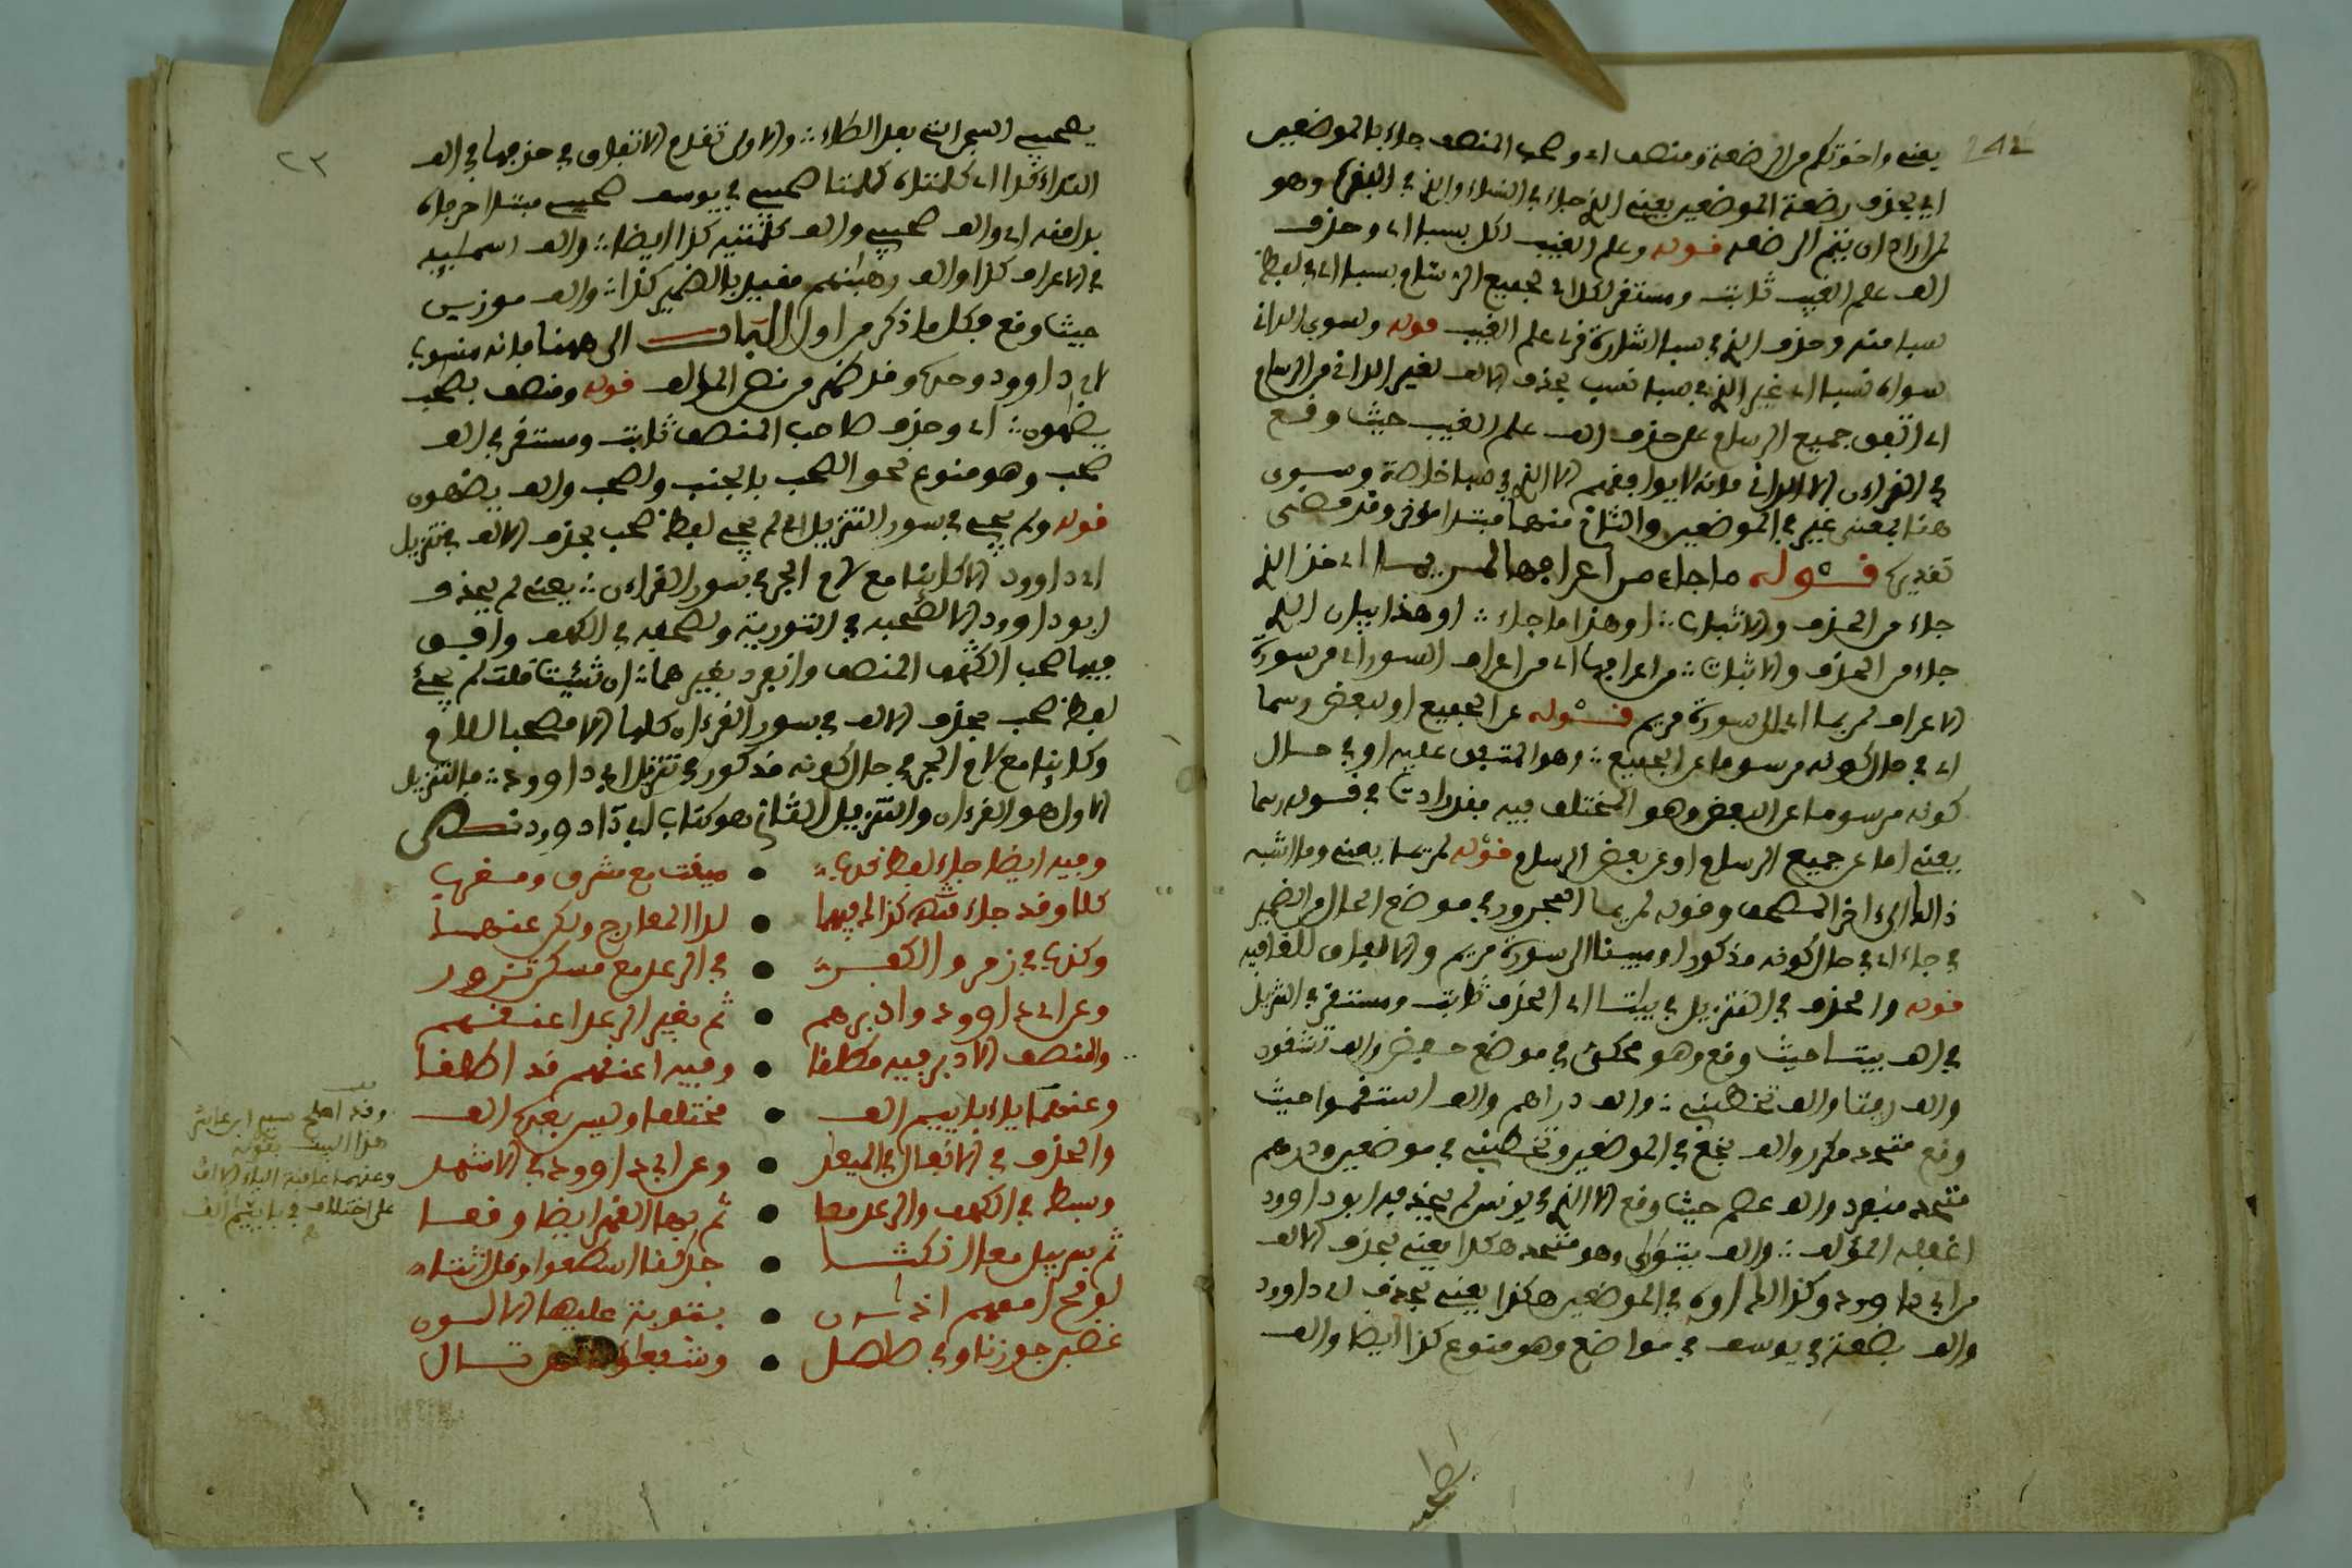 يعني واخوتكم من الرضعة ومنصف اي وصحب المنصف جاء بالموضعين
اي بحذف رضعة الموضعين يعني الذي جاء في النساء والذي في البقرة وهو
لمن اراد ان يتم الرضعه قوله وعلم الغيب لكل بسبا اي وحذف
الف علم الغيب ثابت ومستقر لكل اي لجميع الرسام بسبا اي في لفظ
سبا منه وحذف الذي في سبا علم الغيب قوله وسوى الداني
سواه نسبا اي غير الذي في سبا نسب بحذف الالف لغير الداني من الرسام
اي اتفق جميع الرسام على حذف الف علم الغيب حيث وقع
في القرءان الا الداني فانه لا يوافقهم الا الذي في سبا خاصة وسوى
هنا بمعنى غير في الموضعين والثاني منهما مبتدا مؤخر وقد مضى
تقديره قوله ما جاء من اعرافها لمريما اي خذ الذي
جاء من الحذف والاثبات او هذا ما جاء او هذا بيان الذي
جاء من الحذف والاثبات من اعرافها اي من اعراف السور اي من سورة
الاعراف لمريما الى سورة مريم قوله عن الجميع او لبعض رسما
اي في حال كونه مرسوما عن الجميع وهو المتفق عليه او في حال
كونه مرسوما عن البعض وهو المختلف فيه في قوله رسما
يعني اما عن جميع الرسام او عن بعض الرسام قوله لمريما يعني وما اشبه
ذالك الى اخر المصحف وقوله لمريما المجرور في موضع الحال من الضمير
في جاء اي في حال كونه مذكورا ومبينا الى سورة مريم والالف للقافيه
قوله والحذف في التنزيل في بياتا اي الحذف ثابت ومستقر في التنزيل
في الف بيتا حيث وقع وهو محكي في موضع خفض والف تشقون
والف رفتا والف تخطبني والف دراهم والف استقموا حيث
وقع متحد مكرر والف بخع في الموضعين وتخطبني في موضعين ودرهم
متحد منفرد والف عصم حيث وقع الا الذي في يونس لم يحذفه ابو داوود
اغفله المؤلف والف يتوارى وهو متحد هكذا يعني بحذف الالف
من ابي داوود وكذا الف اوه في الموضعين هكذا يعني بحذف ابي داوود
والف بضعة في يوسف في مواضع وهو متنوع كذا ايضا والف
يصحبي السجن التي بعد الطاء والاولى تقدم الاتفاق في حذفها في الف
النداء قد اي كلتا كلتا صحبي في يوسف صحبي مبتدا خرجاه
بدلا منه اي والف صحبي والف كلمتيه كذا ايضا والف اسمئيه
في الاعراف كذا والف رهبنهم مقيد بالضمير كذا والف موزين
حيث وقع فكل ما ذكر من اول الباب الى ههنا فانه منسوب
لابي داوود وحده وقد ظهر من نص المؤلف قوله ومنصف بصحب
يضهون اي وحذف صاحب المنصف ثابت ومستقر في الف
صحب وهو متنوع نحو الصحب بالجنب ولصحب والف يضهون
قوله ولم يجئ في سور التنزيل اي لم يجئ لفظ صحب بحذف الالف في تنزيل
ابي داوود الا كاينا مع لام الجر في سور القرءان يعني لم يحذف
ابو داوود الا لصحبه في التوبة ولصحبه في الكهف وافق
فيها صحب المنصف وانفرد بغيرهما ان شئت قلت لم يجئ
لفظ صحب بحذف الالف في سور القرءان كلها الا مصحبا للام
وكاينا مع لام الجر في حال كونه مذكورا في تنزيل ابي داوود فالتنزيل
الاول هو القرءان والتنزيل الثاني هو كتاب ابي داوود
وفيه ايضا جاء لفظ • ميقت مع مشرق ومغرب
كلا وقد جاء كذا فيهما • لدا المعارج ولكن عنهما
وكذبا في زمر والكفر • في الرعد مع مسكن تزور
وعن ابي داوود وادبرهم • ثم بغير الرعد اعنقهم
والمنصف الادبر فيه مطلقا • وفيه اعنقهم قد اطلقا
وعنهما باءيام الف • مختلفا وليس بعده الف
والحذف في الانفال في الميعد • وعن ابي داوود في الاشهد
وبسط في الكهف والرعد معا • ثم بها القهر ايضا وقعا
ثم سربيل معا انكثا • خلفنا اسطعوا وقل انثا
لوقح امعهم اذن • بتوبة عليها الالسون
غضبن جوزنا وفي صلصل • وشفعؤا
وقد اصلح سيدي ابن عاشر
هذا البيت بقوله
على اختلاف في بايم الف